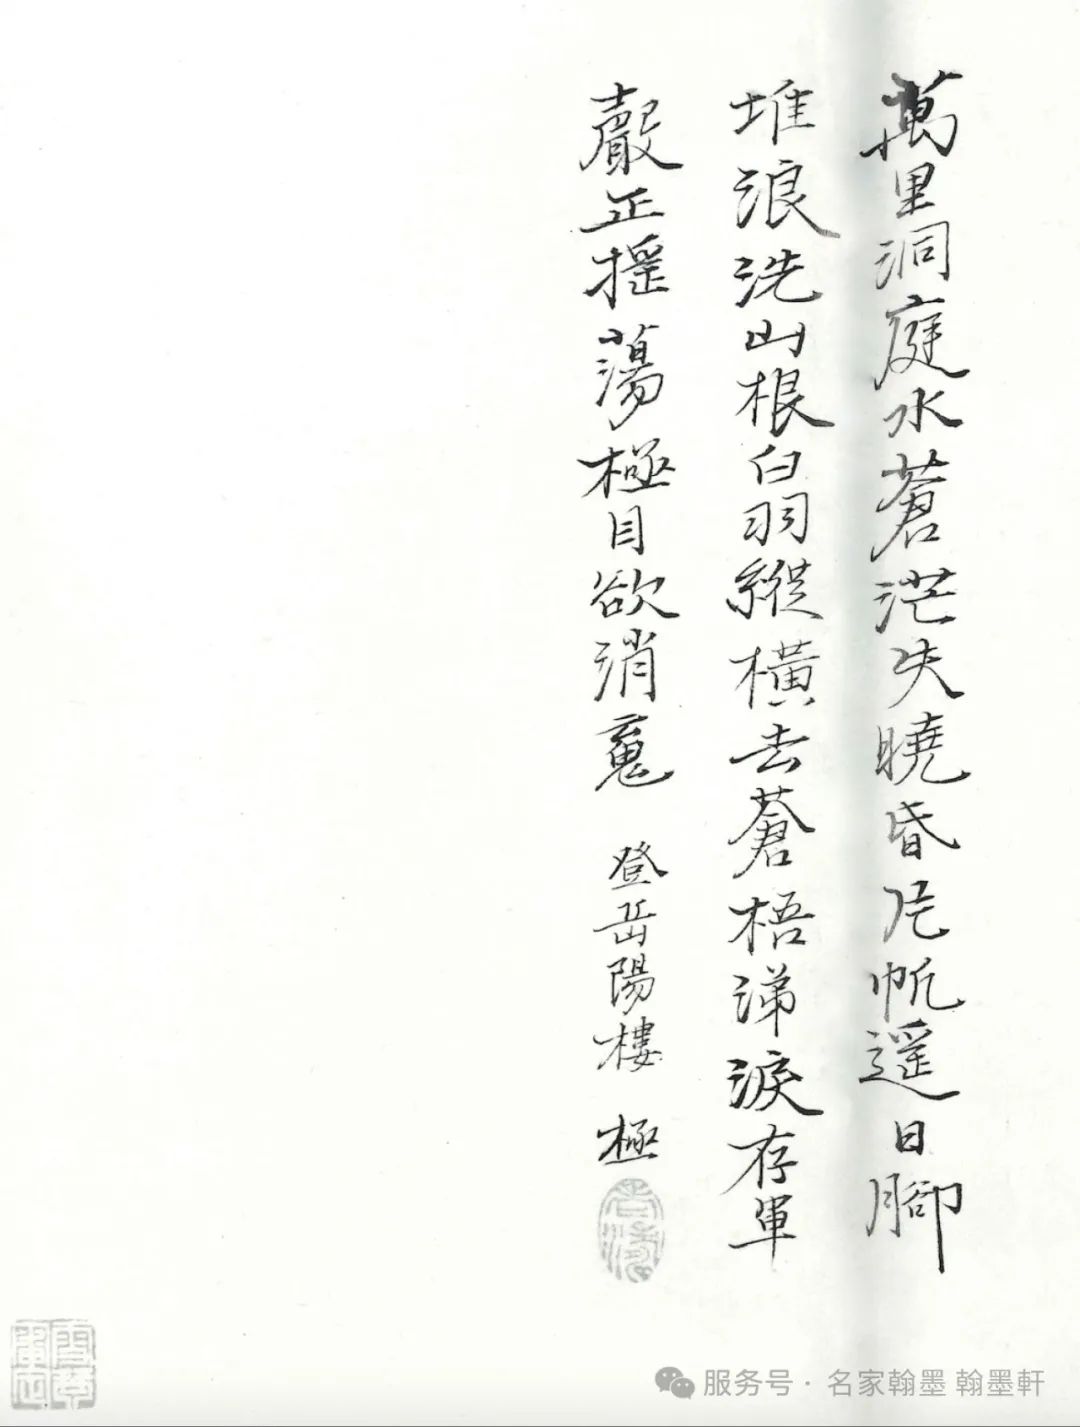 萬里洞庭水蒼茫失曉昏片帆遥日腳
堆浪洗山根白羽縱橫去蒼梧涕淚存軍
聲正摇蕩極目欲消魂 登岳陽樓 極
服务号·名家翰墨 翰墨軒